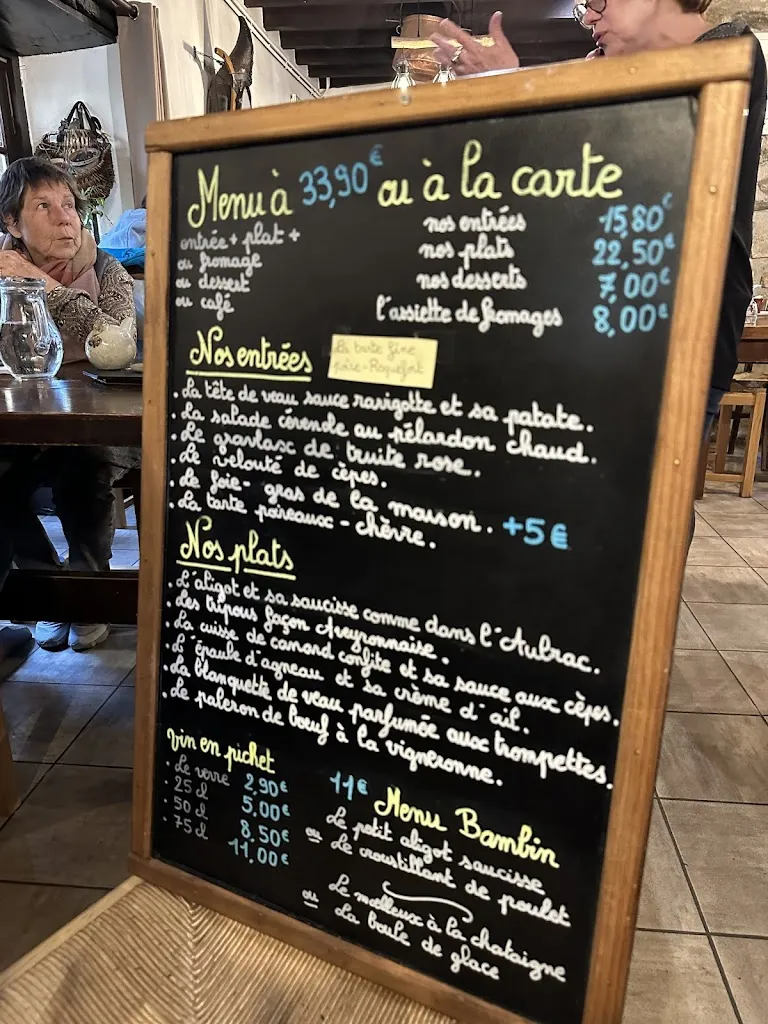 Menu à 33,90€ ou à la carte
entrée + plat +
ou fromage
ou dessert
ou café
nos entrées 15,80€
nos plats 22,50€
nos desserts 7,00€
l'assiette de fromages 8,00€
Nos entrées
La tarte fine
poire-Roquefort
. La tête de veau sauce ravigotte et sa patate.
. La salade cévenole au pélardon chaud.
. Le gravlax de truite rose.
. Le velouté de cèpes.
. Le foie-gras de la maison. +5€
. La tarte poireaux-chèvre.
Nos plats
. L'aligot et sa saucisse comme dans l'Aubrac.
. Les tripous façon Aveyronnaise.
. La cuisse de canard confite et sa sauce aux cèpes.
. L'épaule d'agneau et sa crème d'ail.
. La blanquette de veau parfumée aux trompettes.
. Le paleron de bœuf à la vigneronne.
vin en pichet
. Le verre 2,90€
. 25 cl 5,00€
. 50 cl 8,50€
. 75 cl 11,00€
11€ Menu Bambin
Le petit aligot saucisse
ou Le croustillant de poulet
Le moelleux à la chataigne
ou La boule de glace